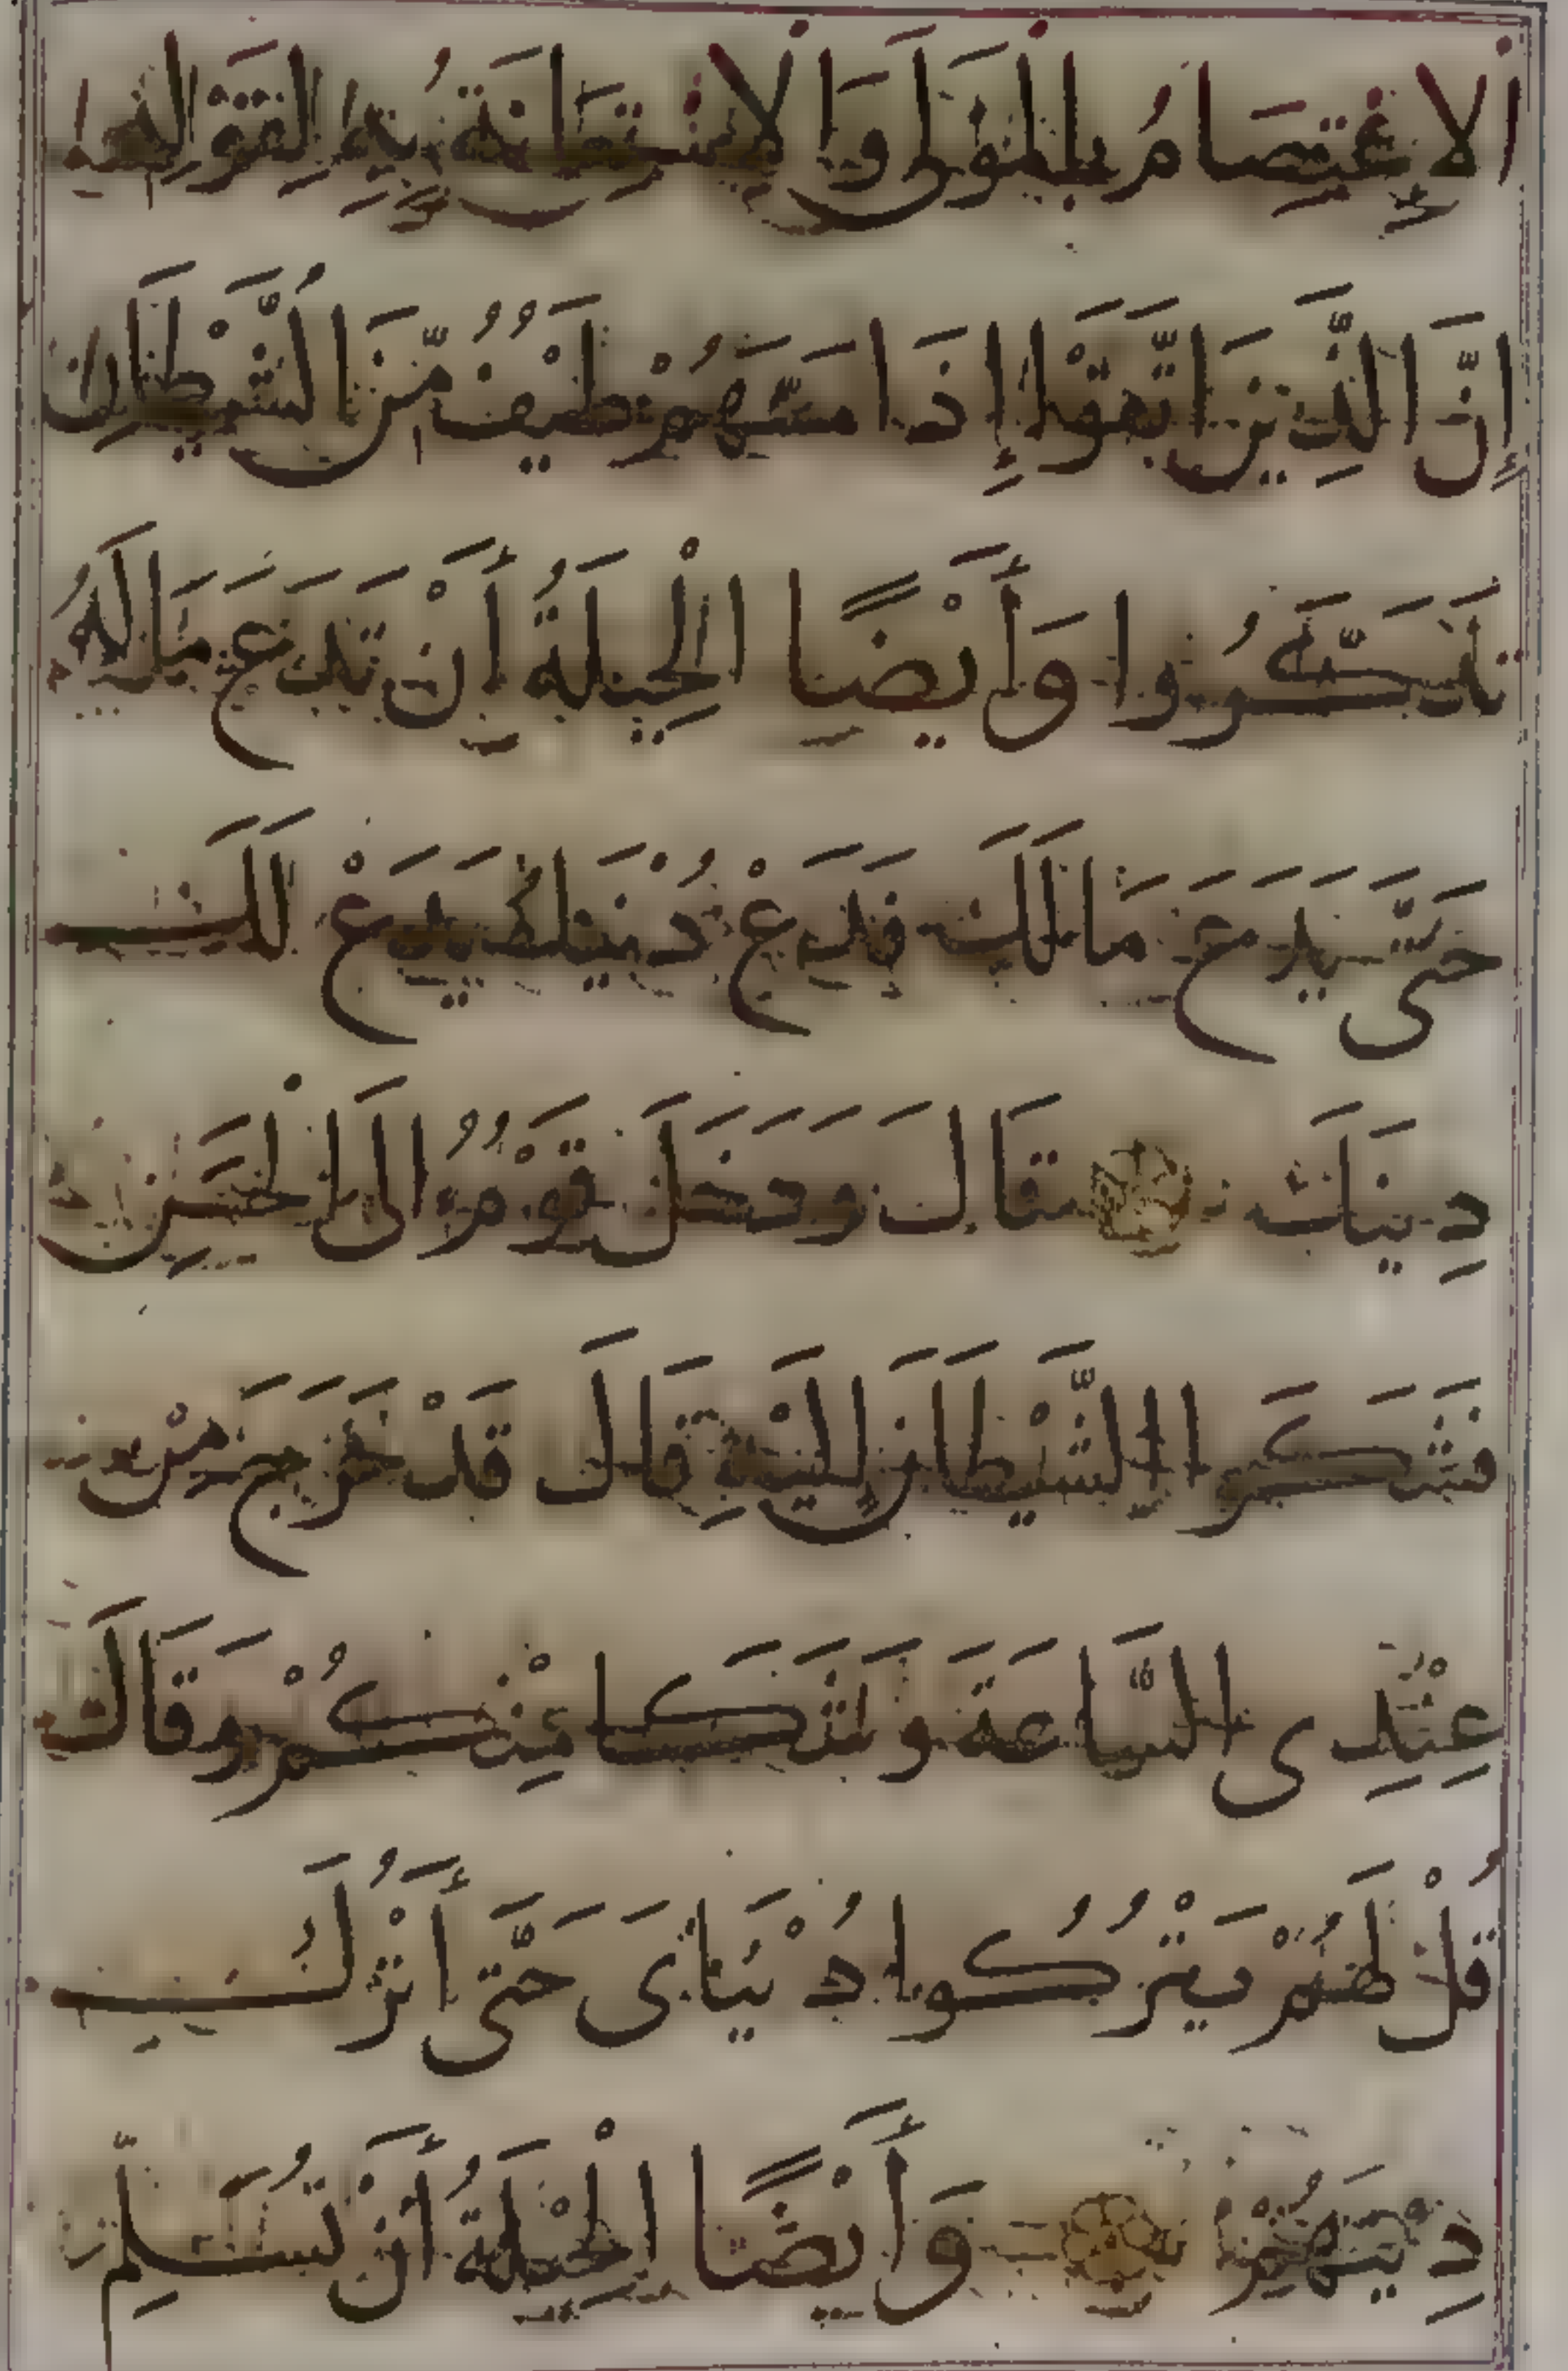 اَلْاِعْتِصَامُ بِالْمَوْلَى وَالْاِسْتِعَانَةُ بِهِ لِقَوْلِهِ
إِنَّ الَّذِينَ اتَّقَوْا إِذَا مَسَّهُمْ طَيْفٌ مِّنَ الشَّيْطَانِ
تَذَكَّرُوا وَأَيْضًا الْحِيلَةُ أَنْ تَدَعَ مَا لَهُ
حَتَّى يَدَعَ مَا لَكَ فَدَعْ دُنْيَاهُ يَدَعْ لَكَ
دِينَكَ قَالَ وَدَخَلَ قَوْمٌ إِلَى الْحَسَنِ
فَشَكَرَا الشَّيْطَانَ إِلَيْهِ قَالَ قَدْ خَرَجَ مِنْ
عِنْدِى السَّاعَةَ وَشَكَا مِنْكُمْ وَقَالَ
قُلْ لَهُمْ يَتْرُكُوا دُنْيَاىَ حَتَّى أَتْرُكَ
دِينَهُمْ وَأَيْضًا الْحِيلَةُ أَنْ تُسَلِّمَ